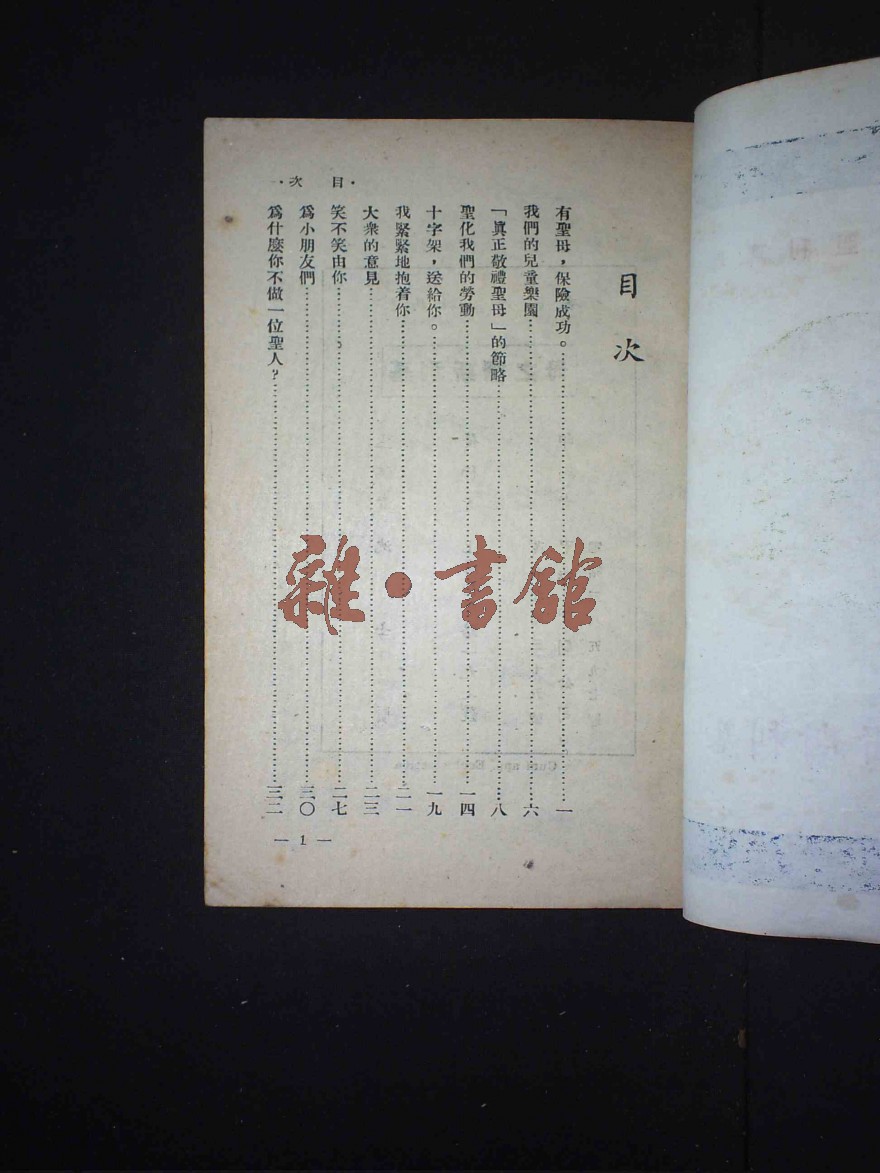 ·目　次·一
目次
有聖母，保險成功。……一
我們的兒童樂園……六
「眞正敬禮聖母」的節略……八
聖化我們的勞動……一四
十字架，送給你。……一九
我緊緊地抱着你……二一
大衆的意見……二三
笑不笑由你……二七
爲小朋友們……三〇
爲什麼你不做一位聖人？……三二
— 1 —
雜·書館